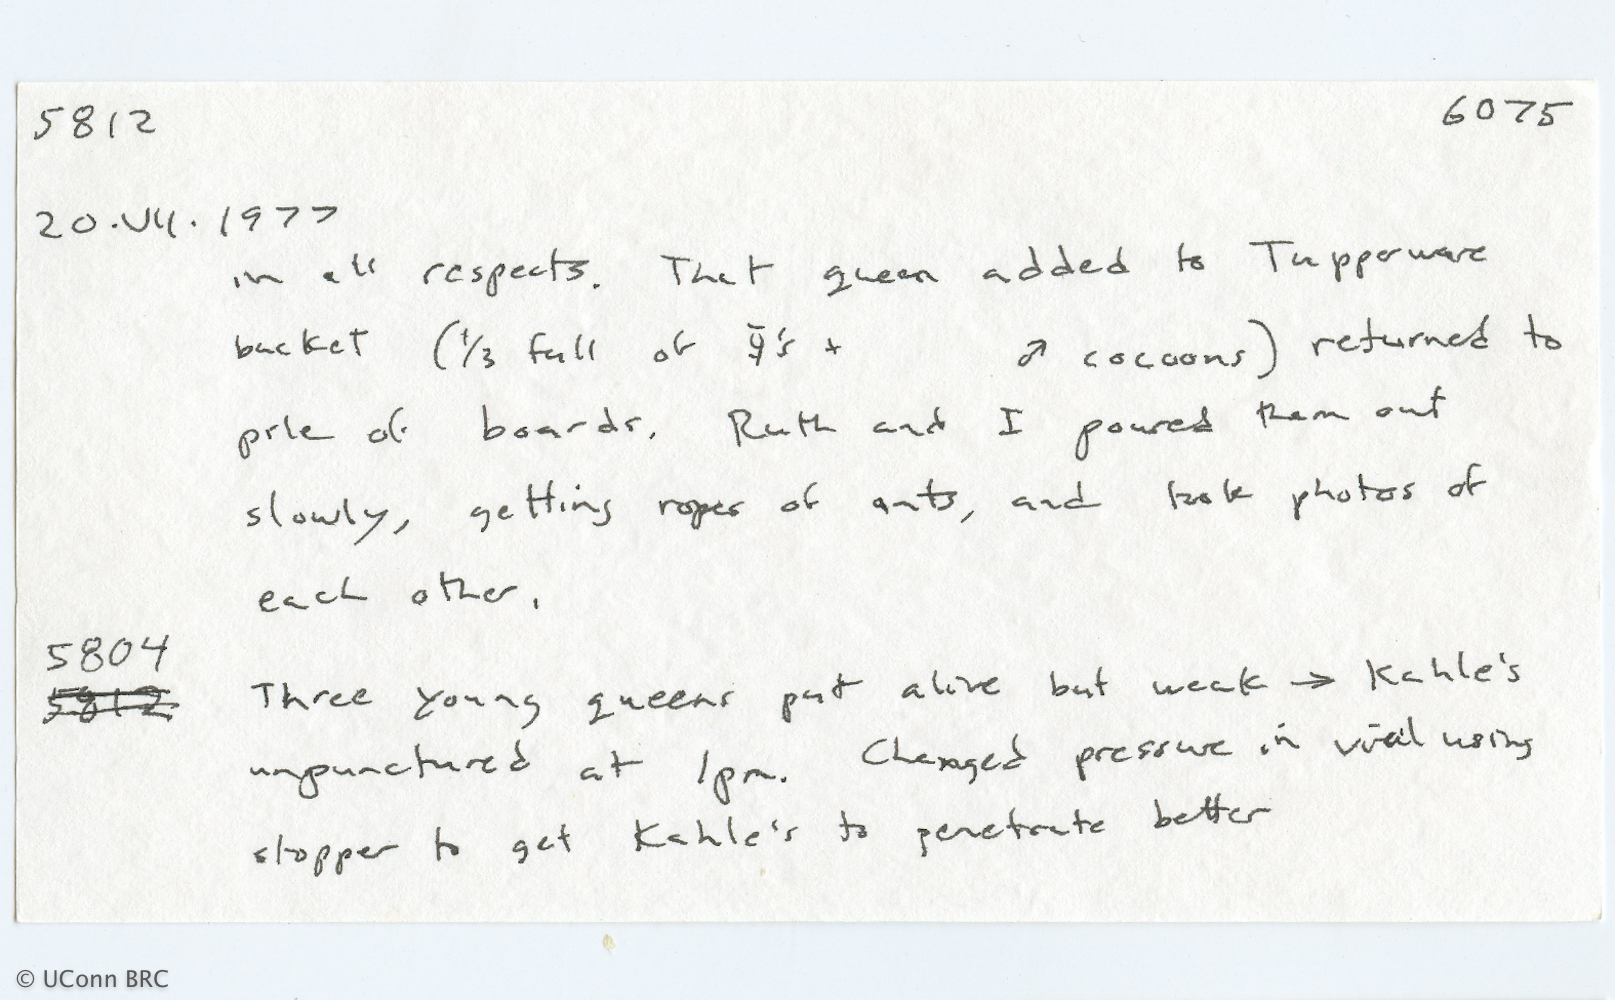 5812 6075
20.VII.1977
in all respects. That queen added to Tupperware
bucket (1/3 full of ☿'s + ♂ cocoons) returned to
pile of boards. Ruth and I poured them out
slowly, getting ropes of ants, and took photos of
each other.
5804
5812 Three young queens put alive but weak → Kahle's
unpunctured at 1pm. Changed pressure in vial using
stopper to get Kahle's to penetrate better
© UConn BRC